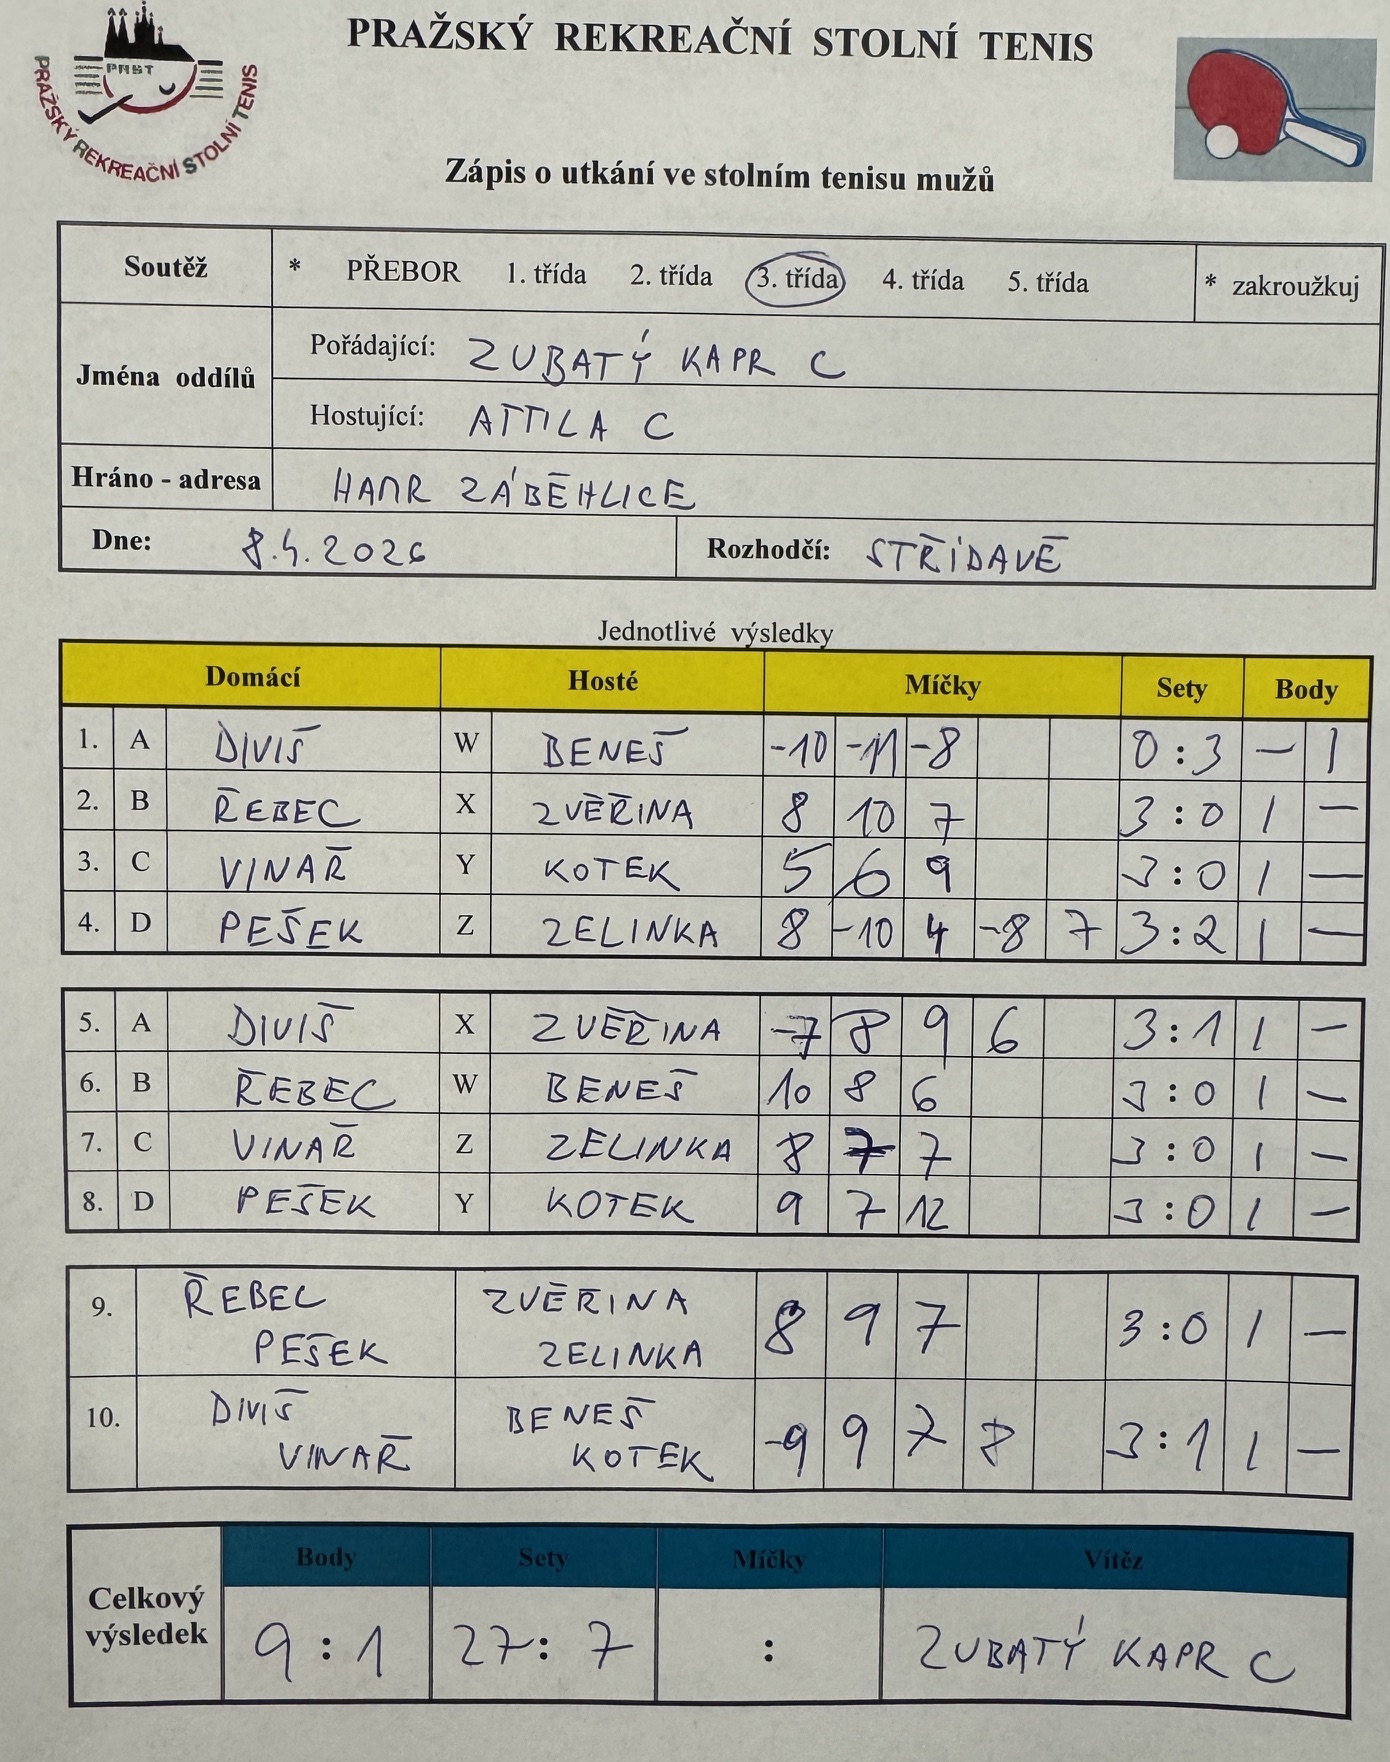 PRAŽSKÝ REKREAČNÍ STOLNÍ TENIS
PRST
PRAŽSKÝ REKREAČNÍ STOLNÍ TENIS
Zápis o utkání ve stolním tenisu mužů
Soutěž * PŘEBOR 1. třída 2. třída 3. třída 4. třída 5. třída * zakroužkuj
Jména oddílů
Pořádající: ZUBATÝ KAPR C
Hostující: ATTILA C
Hráno - adresa HAMR ZÁBĚHLICE
Dne: 8.4.2026 Rozhodčí: STŘÍDAVĚ
Jednotlivé výsledky
Domácí Hosté Míčky Sety Body
1. A DIVIŠ W BENEŠ -10 -11 -8 0:3 – 1
2. B ŘEBEC X ZVĚŘINA 8 10 7 3:0 1 –
3. C VINAŘ Y KOTEK 5 6 9 3:0 1 –
4. D PEŠEK Z ZELINKA 8 -10 4 -8 7 3:2 1 –
5. A DIVIŠ X ZVĚŘINA -7 8 9 6 3:1 1 –
6. B ŘEBEC W BENEŠ 10 8 6 3:0 1 –
7. C VINAŘ Z ZELINKA 8 7 7 3:0 1 –
8. D PEŠEK Y KOTEK 9 7 12 3:0 1 –
9. ŘEBEC ZVĚŘINA 8 9 7 3:0 1 –
PEŠEK ZELINKA
10. DIVIŠ BENEŠ -9 9 7 8 3:1 1 –
VINAŘ KOTEK
Body Sety Míčky Vítěz
Celkový výsledek 9:1 27:7 : ZUBATÝ KAPR C